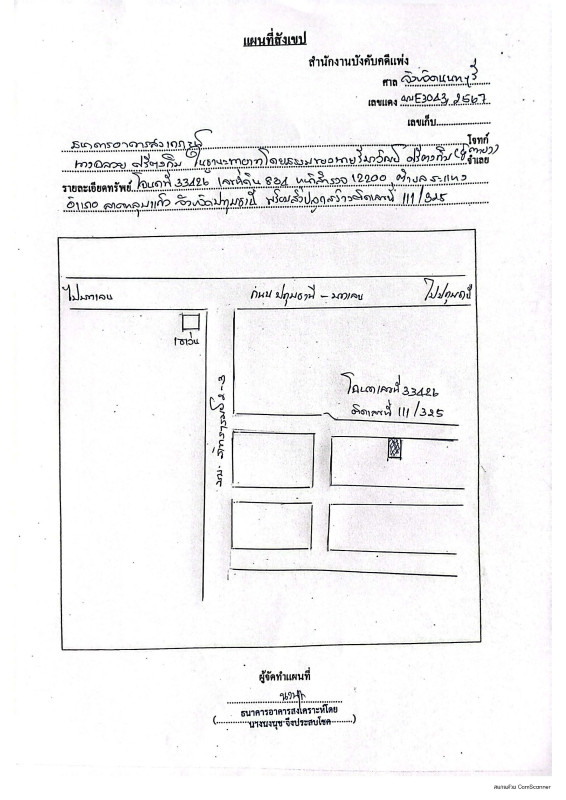 แผนที่สังเขป
สำนักงานบังคับคดีแพ่ง
ศาล จังหวัดนนทบุรี
เลขแดง ผบE3043/2567
เลขเก็บ
ธนาคารอาคารสงเคราะห์ โจทก์
จำเลย
รายละเอียดทรัพย์ โฉนดที่ 33426 เลขที่ดิน 804 หน้าสำรวจ 12200 ตำบล ระแหง
อำเภอ ลาดหลุมแก้ว จังหวัดปทุมธานี พร้อมสิ่งปลูกสร้างเลขที่ 111/325
ไปบางเลน
ถนน ปทุมธานี - บางเลน
ไปปทุมธานี
เซเว่น
โฉนดเลขที่ 33426
เลขที่ 111/325
2-3
ผู้จัดทำแผนที่
ธนาคารอาคารสงเคราะห์โดย
(นางนงนุช จึงประสบโชค)
สแกนด้วย CamScanner